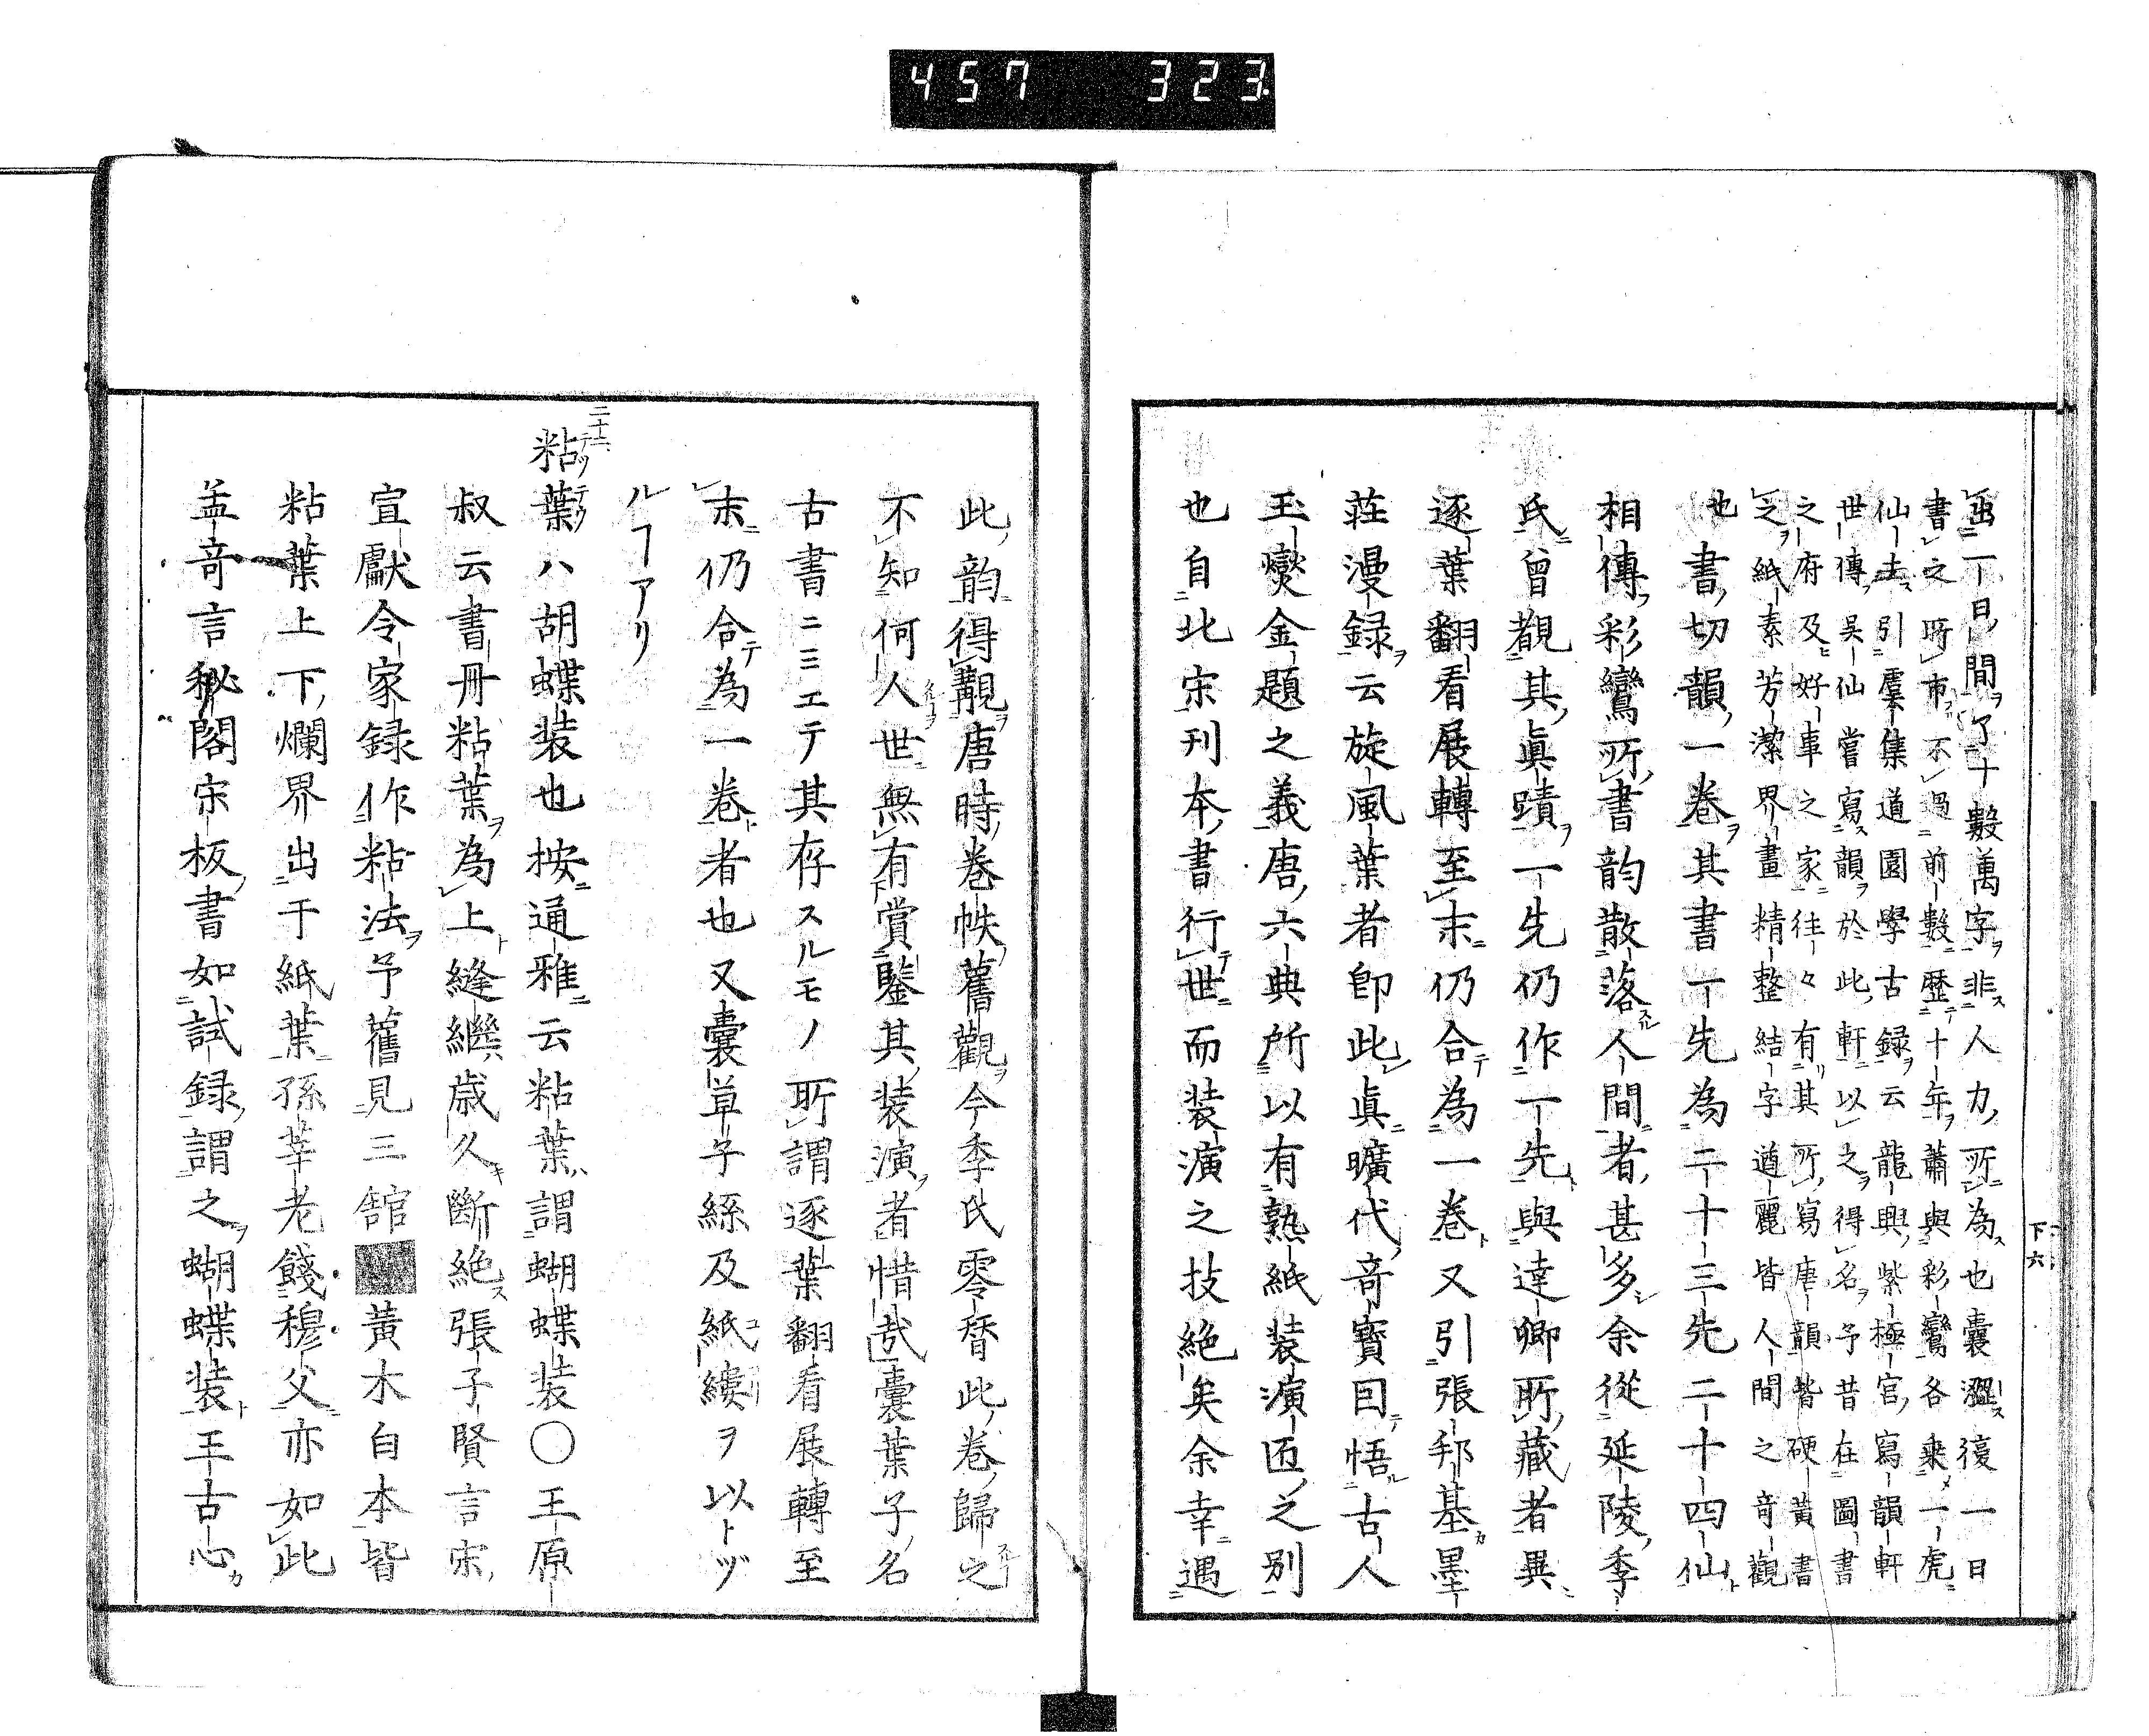 457 323
茁一日間了十數萬字非人力所為也囊澀復一日
書之所市不過前數歷十年蕭與彩鸞各乗一虎
仙去引羣集道園學古録云龍興紫極宮寫韻軒
世傳吳仙嘗寫韻於此軒以之得名予昔在圖書
之府及好車之家往々有其所寫唐韻皆硬黃書
之紙素芳潔界畫精整結字遒麗皆人間之竒觀
也書切韻一卷其書一先為二十三先二十四仙
相傳彩鸞所書韵散落人間者甚多余從延陵季
氏曾覩其眞蹟一先仍作一先與逹卿所藏者異
逐葉翻看展轉至末仍合為一卷又引張邦基墨
莊漫録云旋風葉者卽此眞曠代竒寳囙悟古人
玉爕金題之義唐六典所以有熟紙装潢匠之别
也自此宋刊本書行世而装潢之技絶矣余幸遇
下六
此韵得覯唐時卷帙舊觀今季氏零替此卷歸之
不知何人世無有賞鑒其装潢者惜哉囊葉子名
古書ニミエテ其存スルモノ所謂逐葉翻看展轉至
末仍合為一卷者也又囊草子絲及紙縷ヲ以トヅ
ルヿアリ
二十二
粘葉ハ胡蝶装也按通雅云粘葉謂蝴蝶装○王原
叔云書册粘葉為上縫繼歳久斷絶張子賢言宋
宣獻令家録作粘法予舊見三舘黃木白本皆
粘葉上下爛界出于紙葉孫莘老錢穆父亦如此
孟竒言秘閣宋板書如試録謂之蝴蝶装王古心